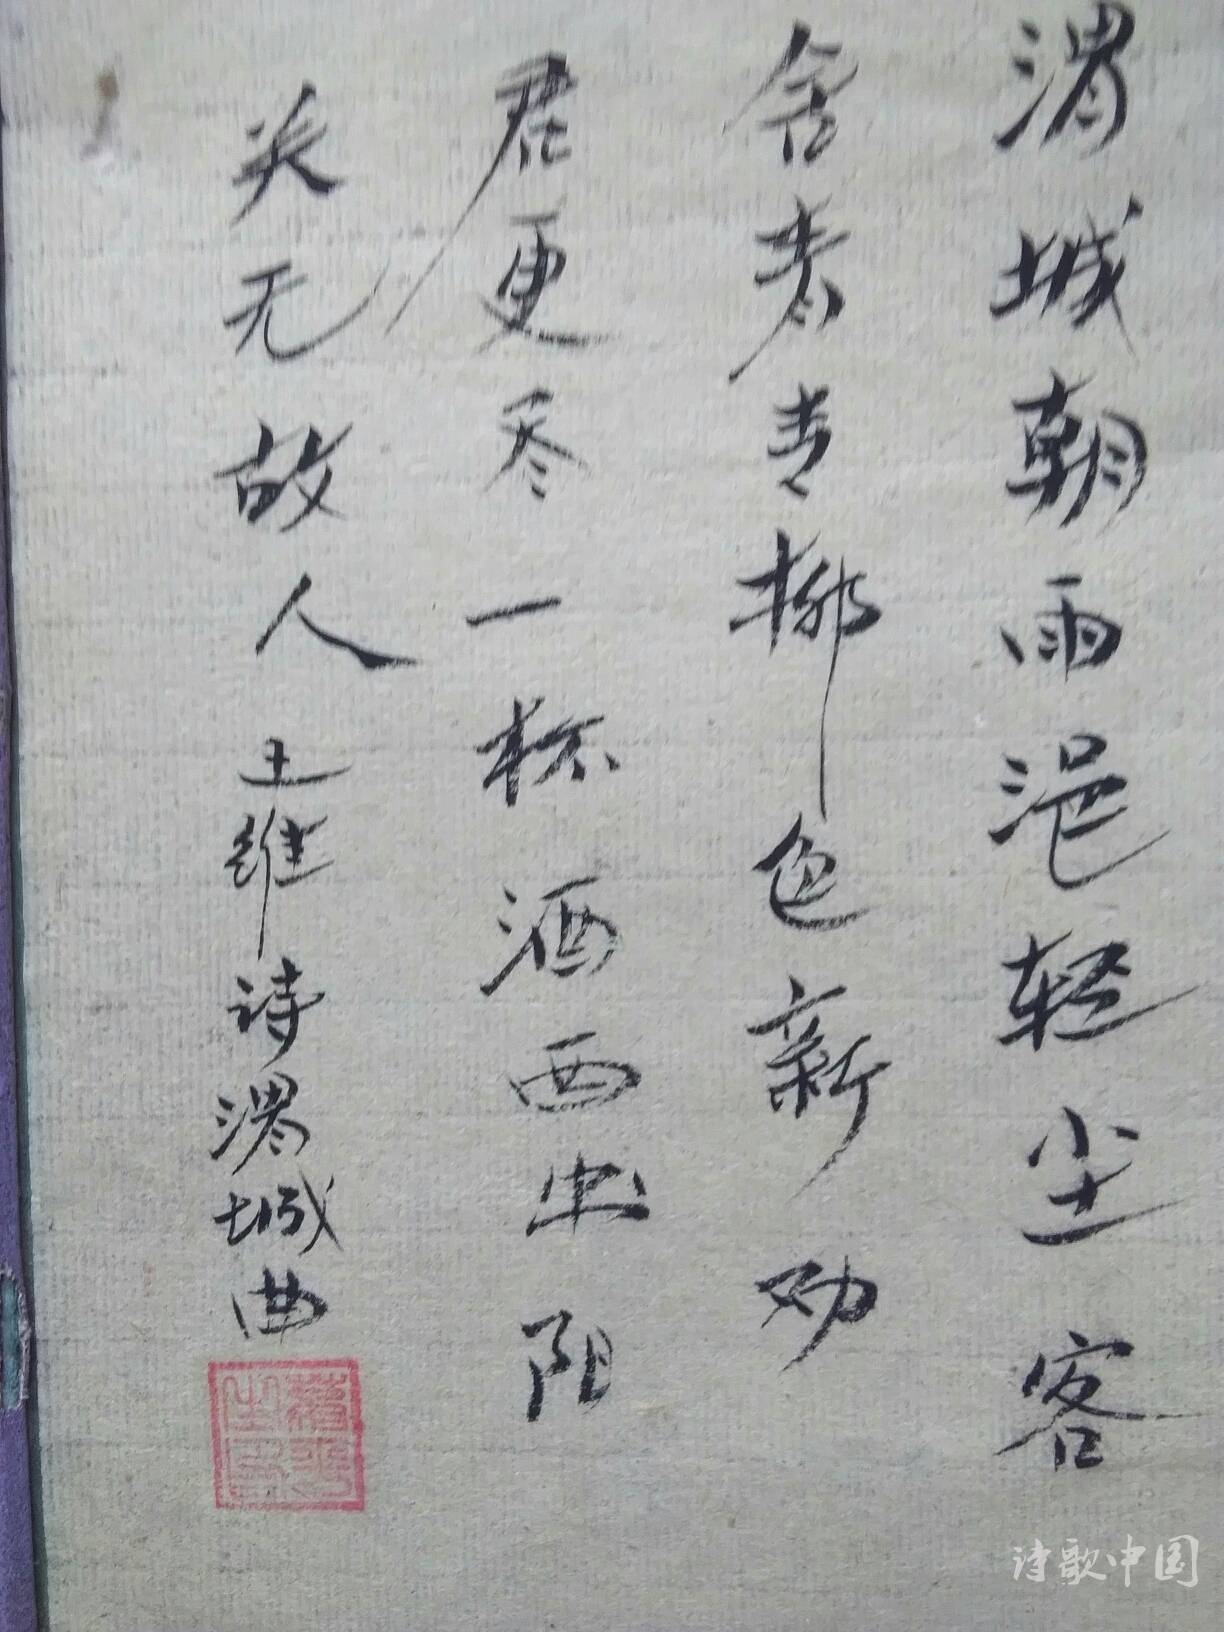 渭城朝雨浥轻尘客
舍青青柳色新劝
君更尽一杯酒西出阳
关无故人王维诗渭城曲
诗歌中国